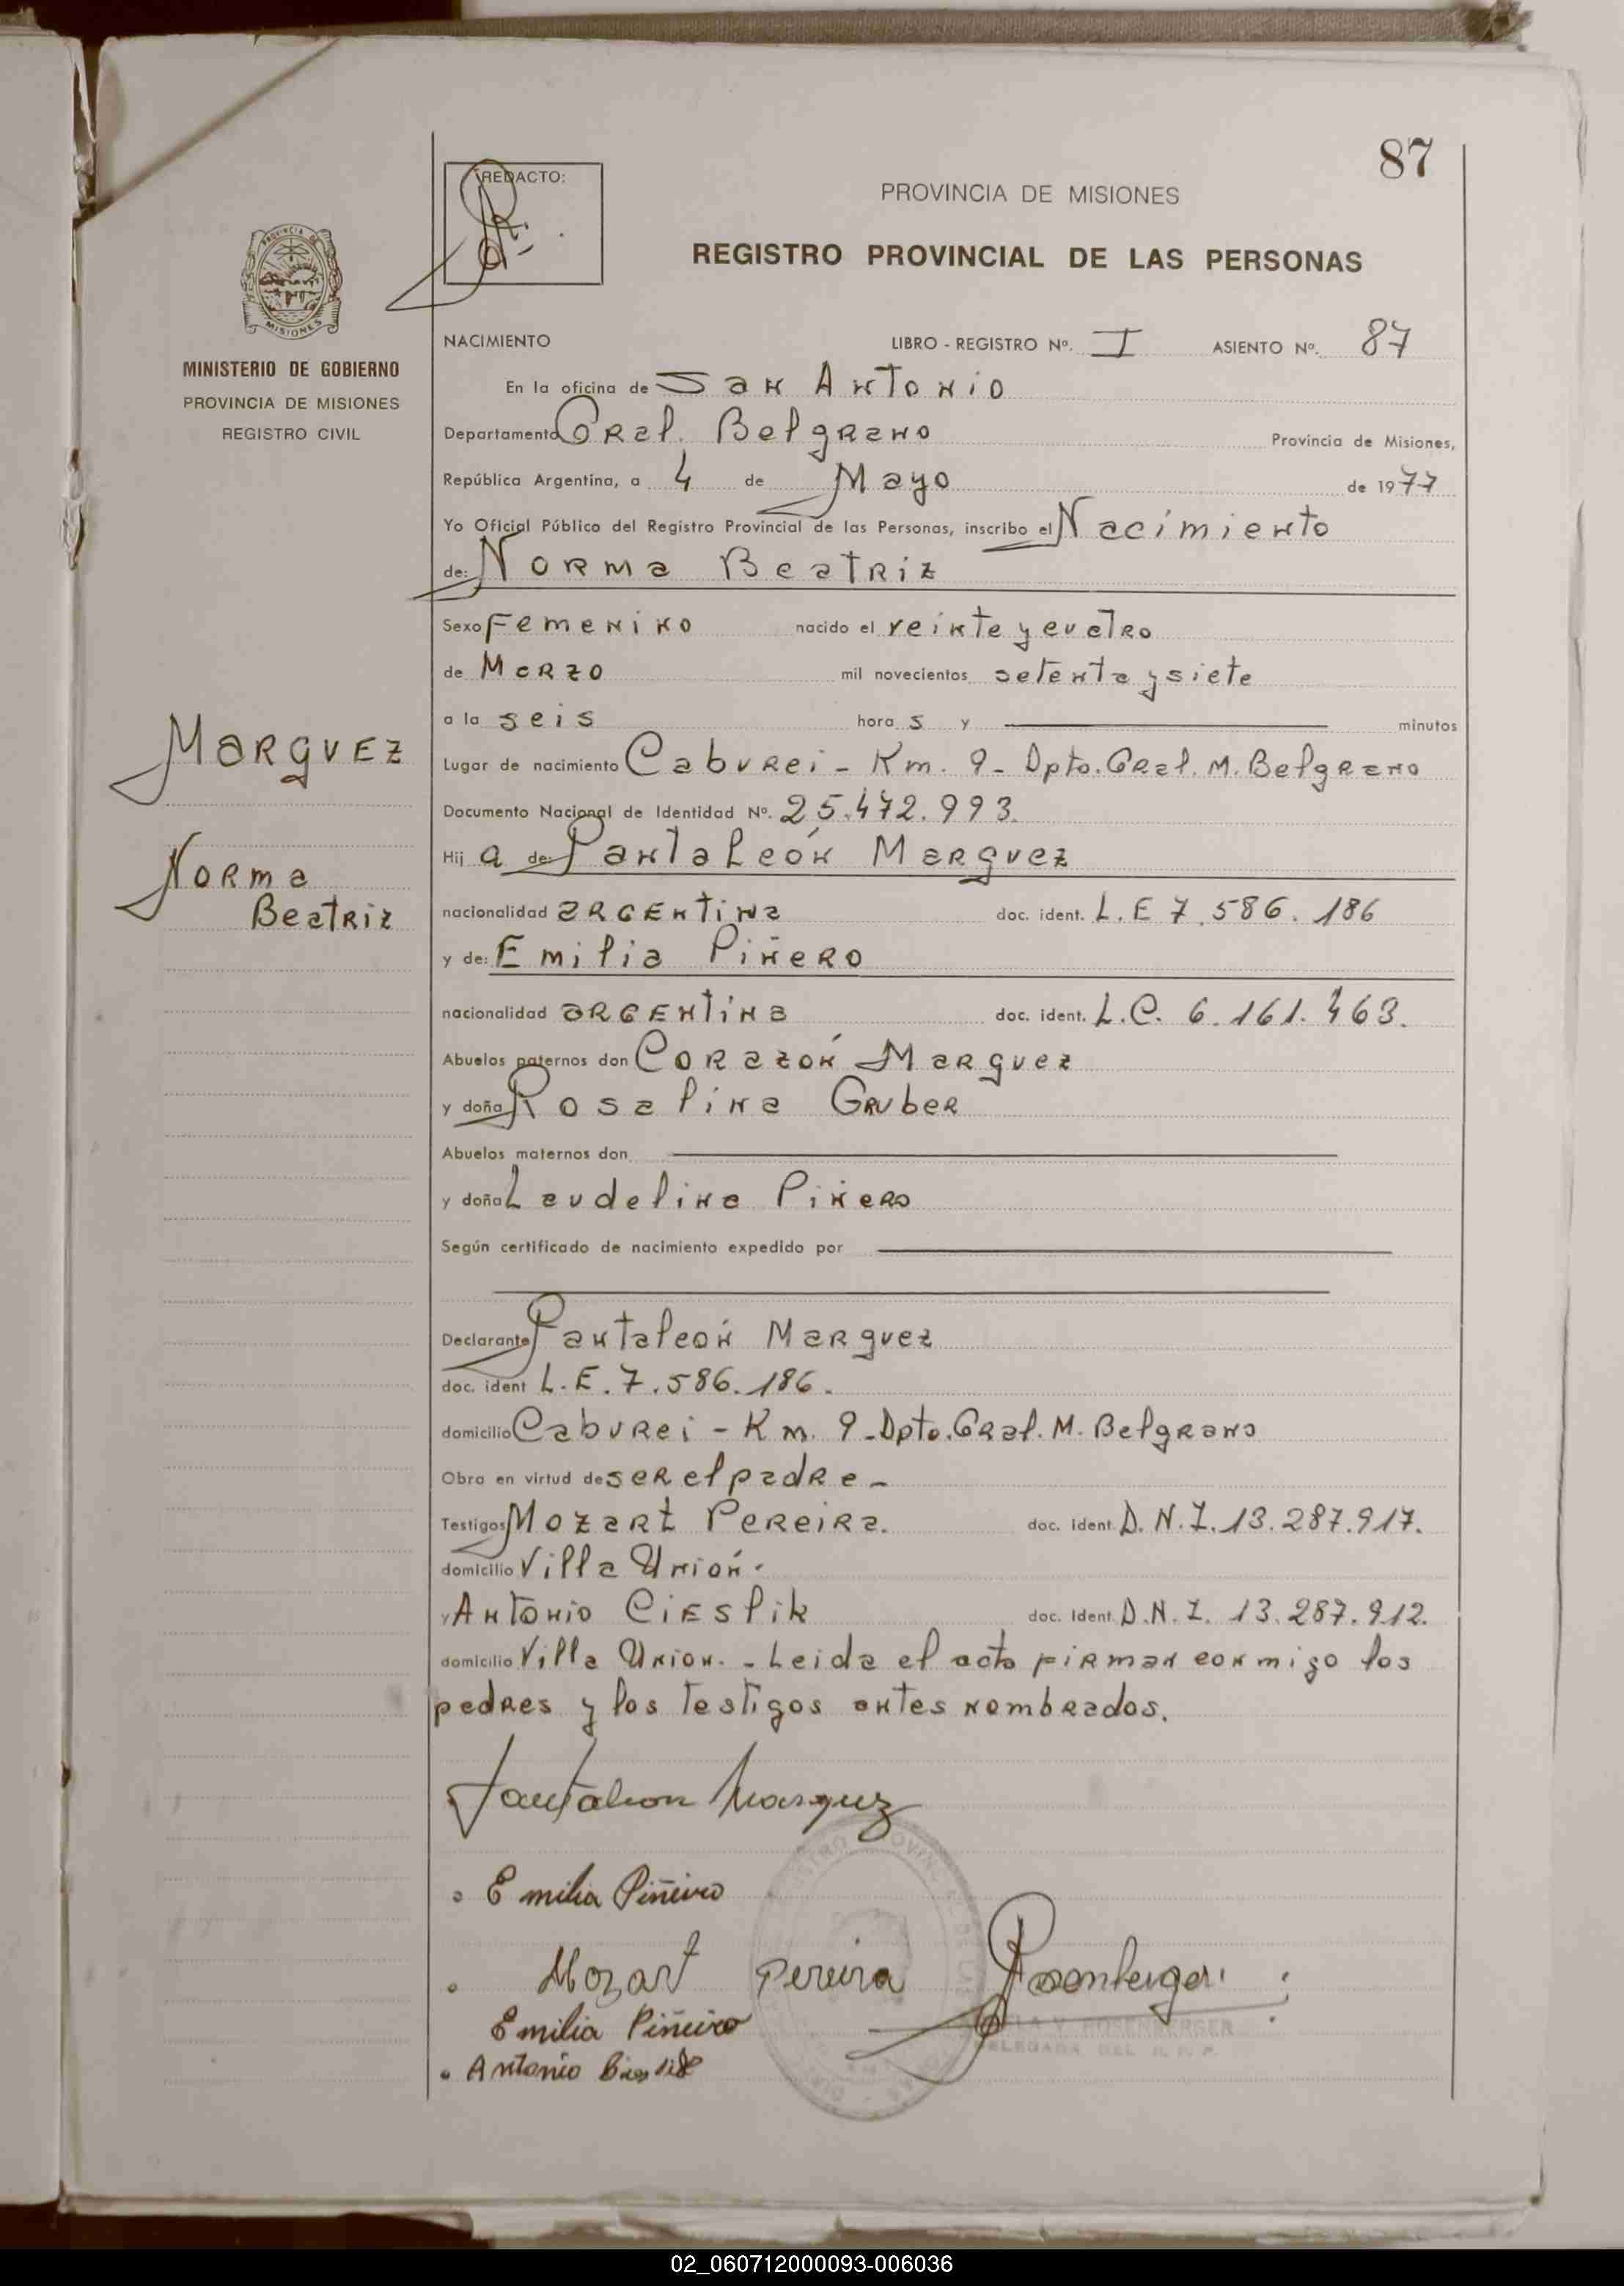 87
REDACTO:
PROVINCIA DE MISIONES
REGISTRO PROVINCIAL DE LAS PERSONAS
PROVINCIA DE
MISIONES
MINISTERIO DE GOBIERNO
PROVINCIA DE MISIONES
REGISTRO CIVIL
NACIMIENTO LIBRO - REGISTRO Nº. I ASIENTO Nº. 87
En la oficina de San Antonio
Departamento Gral. Belgrano Provincia de Misiones,
República Argentina, a 4 de Mayo de 1977
Yo Oficial Público del Registro Provincial de las Personas, inscribo el Nacimiento
de: Norma Beatriz
Sexo Femenino nacido el veinte y cuatro
de Marzo mil novecientos setenta y siete
a la seis hora s y minutos
Marquez
Lugar de nacimiento Caburei - Km. 9 - Dpto. Gral. M. Belgrano
Documento Nacional de Identidad Nº. 25.472.993.
Hij a de: Pantaleón Marquez
Norma
Beatriz
nacionalidad argentina doc. ident. L.E 7.586.186
y de: Emilia Piñero
nacionalidad argentina doc. ident. L.C. 6.161.463.
Abuelos paternos don Corazón Marquez
y doña Rosalina Gruber
Abuelos maternos don
y doña Laudelina Piñero
Según certificado de nacimiento expedido por
Declarante Pantaleón Marquez
doc. ident L.E. 7.586.186.
domicilio Caburei - Km. 9 - Dpto. Gral. M. Belgrano
Obra en virtud de ser el padre -
Testigos Mozart Pereira. doc. ident. D.N.I. 13.287.917.
domicilio Villa Unión.
y Antonio Cieslik doc. Ident. D.N.I. 13.287.912.
domicilio Villa Union. - Leida el acta firman conmigo los
padres y los testigos antes nombrados.
Pantaleon Marquez
Emilia Piñeiro
Mozart Pereira Rosenberger
Emilia Piñeiro
V. ROSENBERGER
DELEGADA DEL R. P. P.
Antonio
02_060712000093-006036